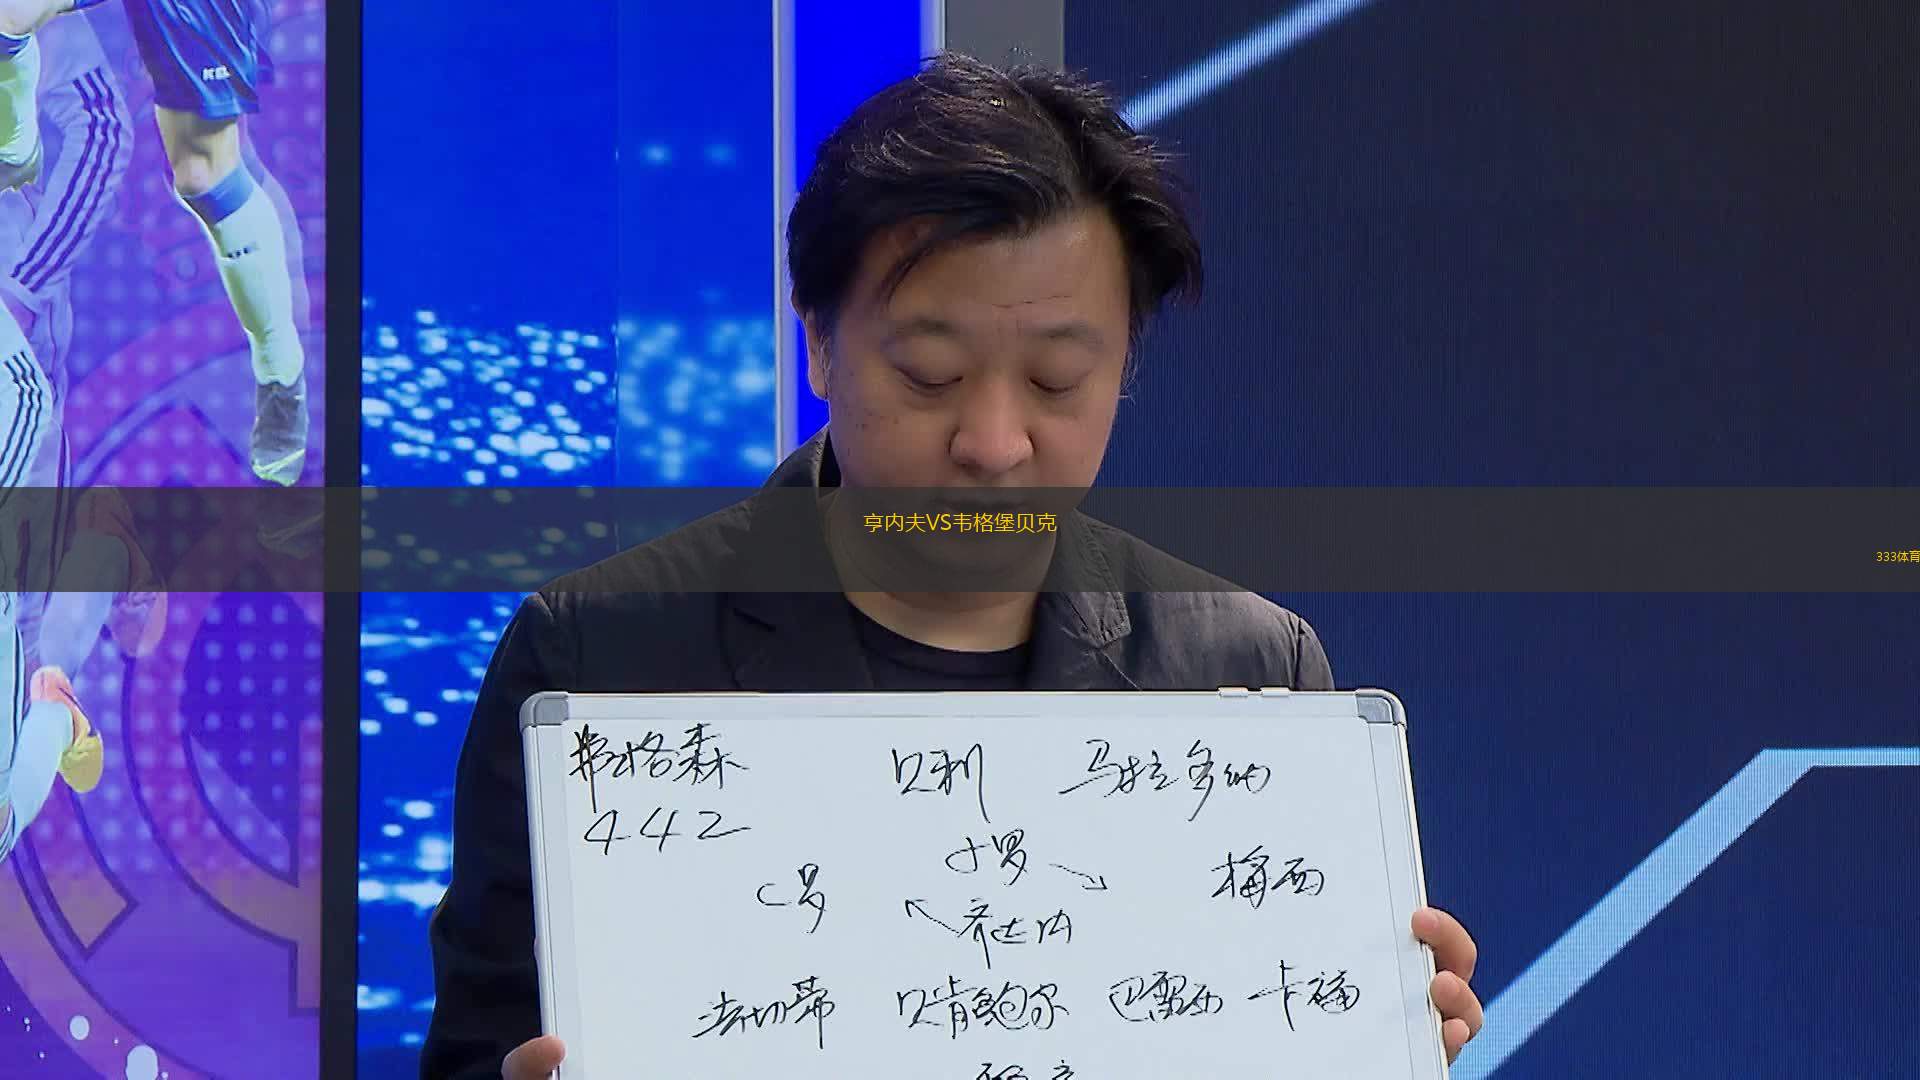 亨内夫VS韦格堡贝克
333体育
弗格森 贝利 马拉多纳
442
小罗
C罗 梅西
齐达内
法切蒂 贝肯鲍尔 巴雷西 卡福